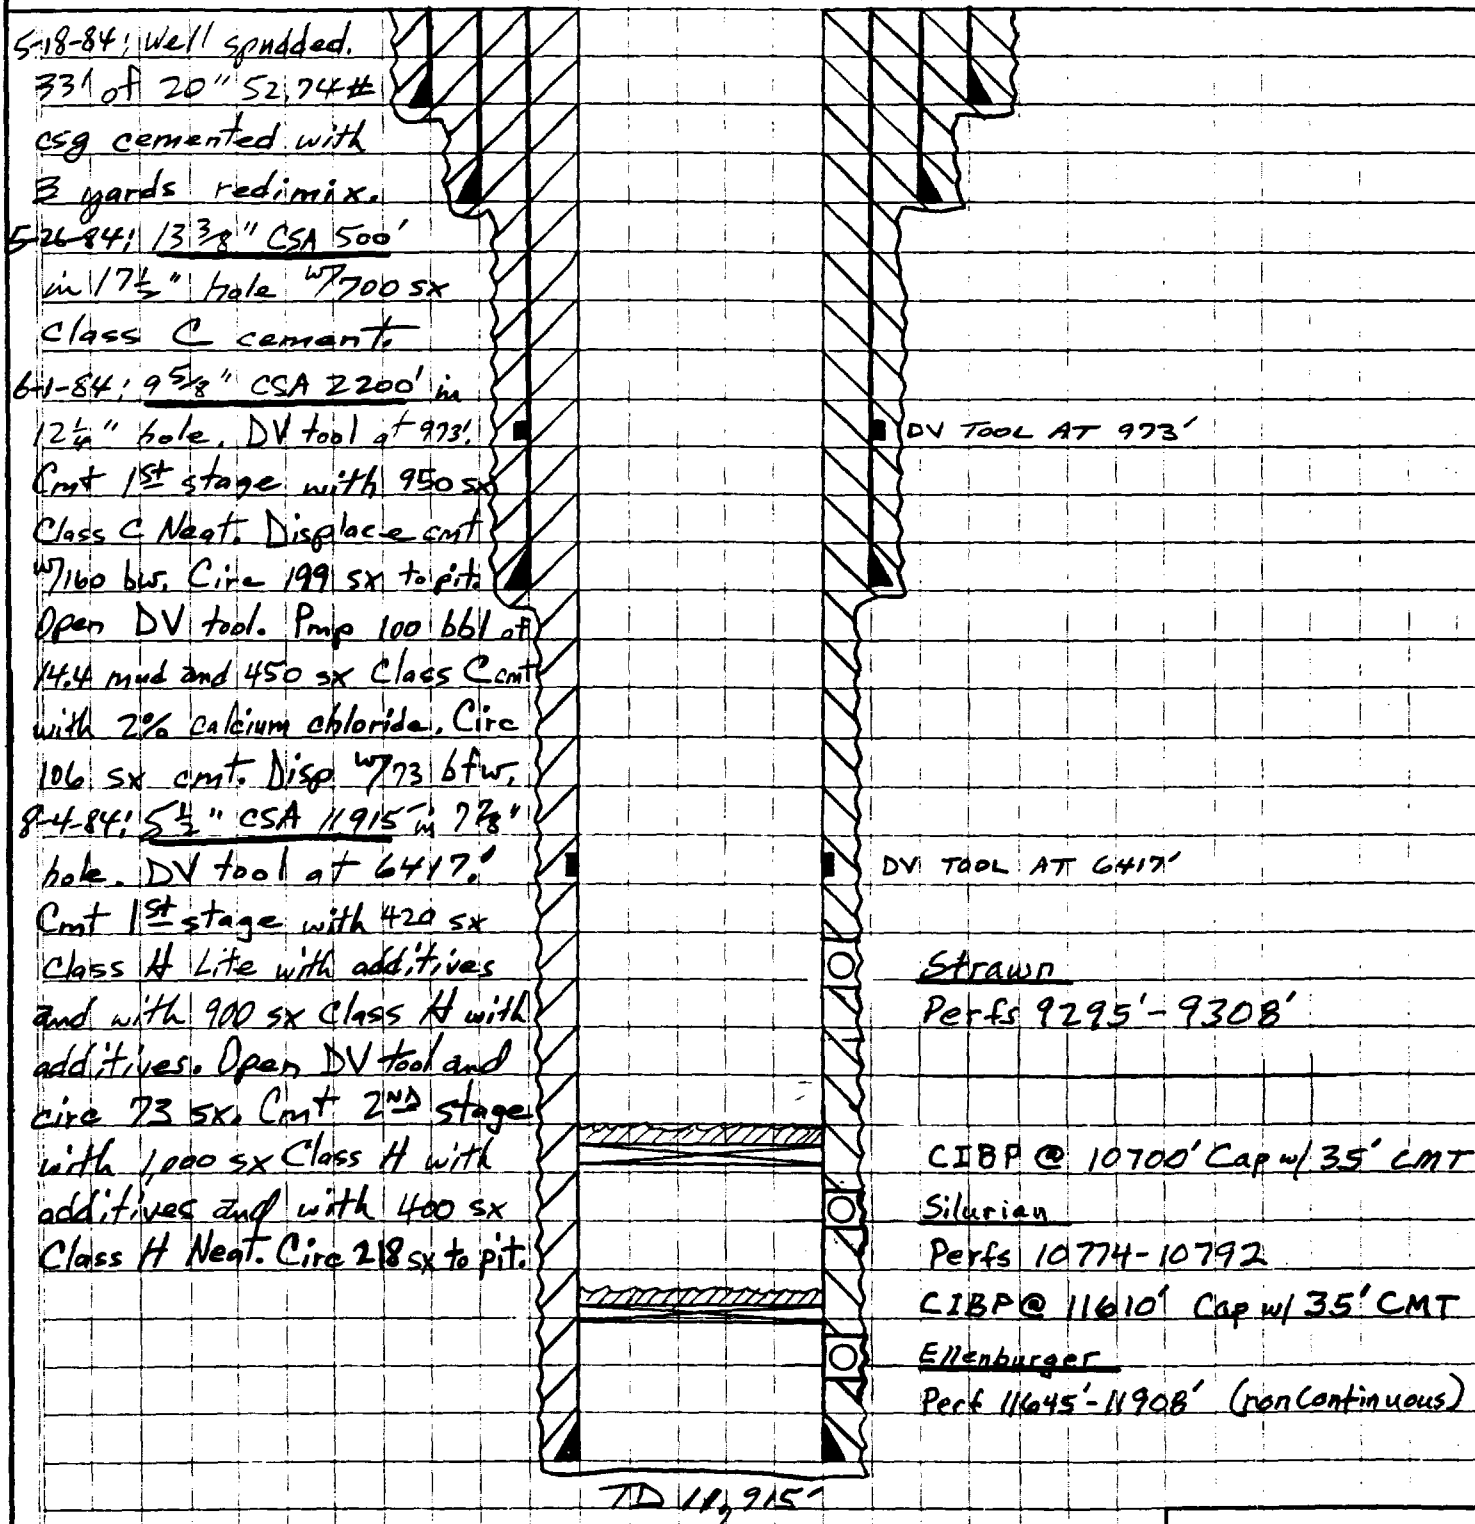 5-18-84; Well spudded.
33' of 20" 52.74#
csg cemented with
3 yards redimix.
5-26-84; 13 3/8" CSA 500'
in 17 1/2" hole w/700 sx
Class C cement.
6-1-84; 9 5/8" CSA 2200' in
12 1/4" hole. DV tool at 973'.
Cmt 1st stage with 950 sx
Class C Neat. Displace cmt
w/160 bw. Circ 199 sx to pit.
Open DV tool. Pmp 100 bbl of
14.4 mud and 450 sx Class C cmt
with 2% calcium chloride. Circ
106 sx cmt. Disp w/73 bfw.
8-4-84; 5 1/2" CSA 11915' in 7 7/8"
hole. DV tool at 6417.'
Cmt 1st stage with 420 sx
Class H Lite with additives
and with 900 sx Class H with
additives. Open DV tool and
circ 73 sx. Cmt 2ND stage
with 1,000 sx Class H with
additives and with 400 sx
Class H Neat. Circ 218 sx to pit.
DV TOOL AT 973'
DV TOOL AT 6417'
Strawn
Perfs 9295'-9308'
CIBP @ 10700' Cap w/ 35' CMT
Silurian
Perfs 10774-10792
CIBP @ 11610' Cap w/ 35' CMT
Ellenburger
Perf 11645'-11908' (noncontinuous)
TD 11,915'